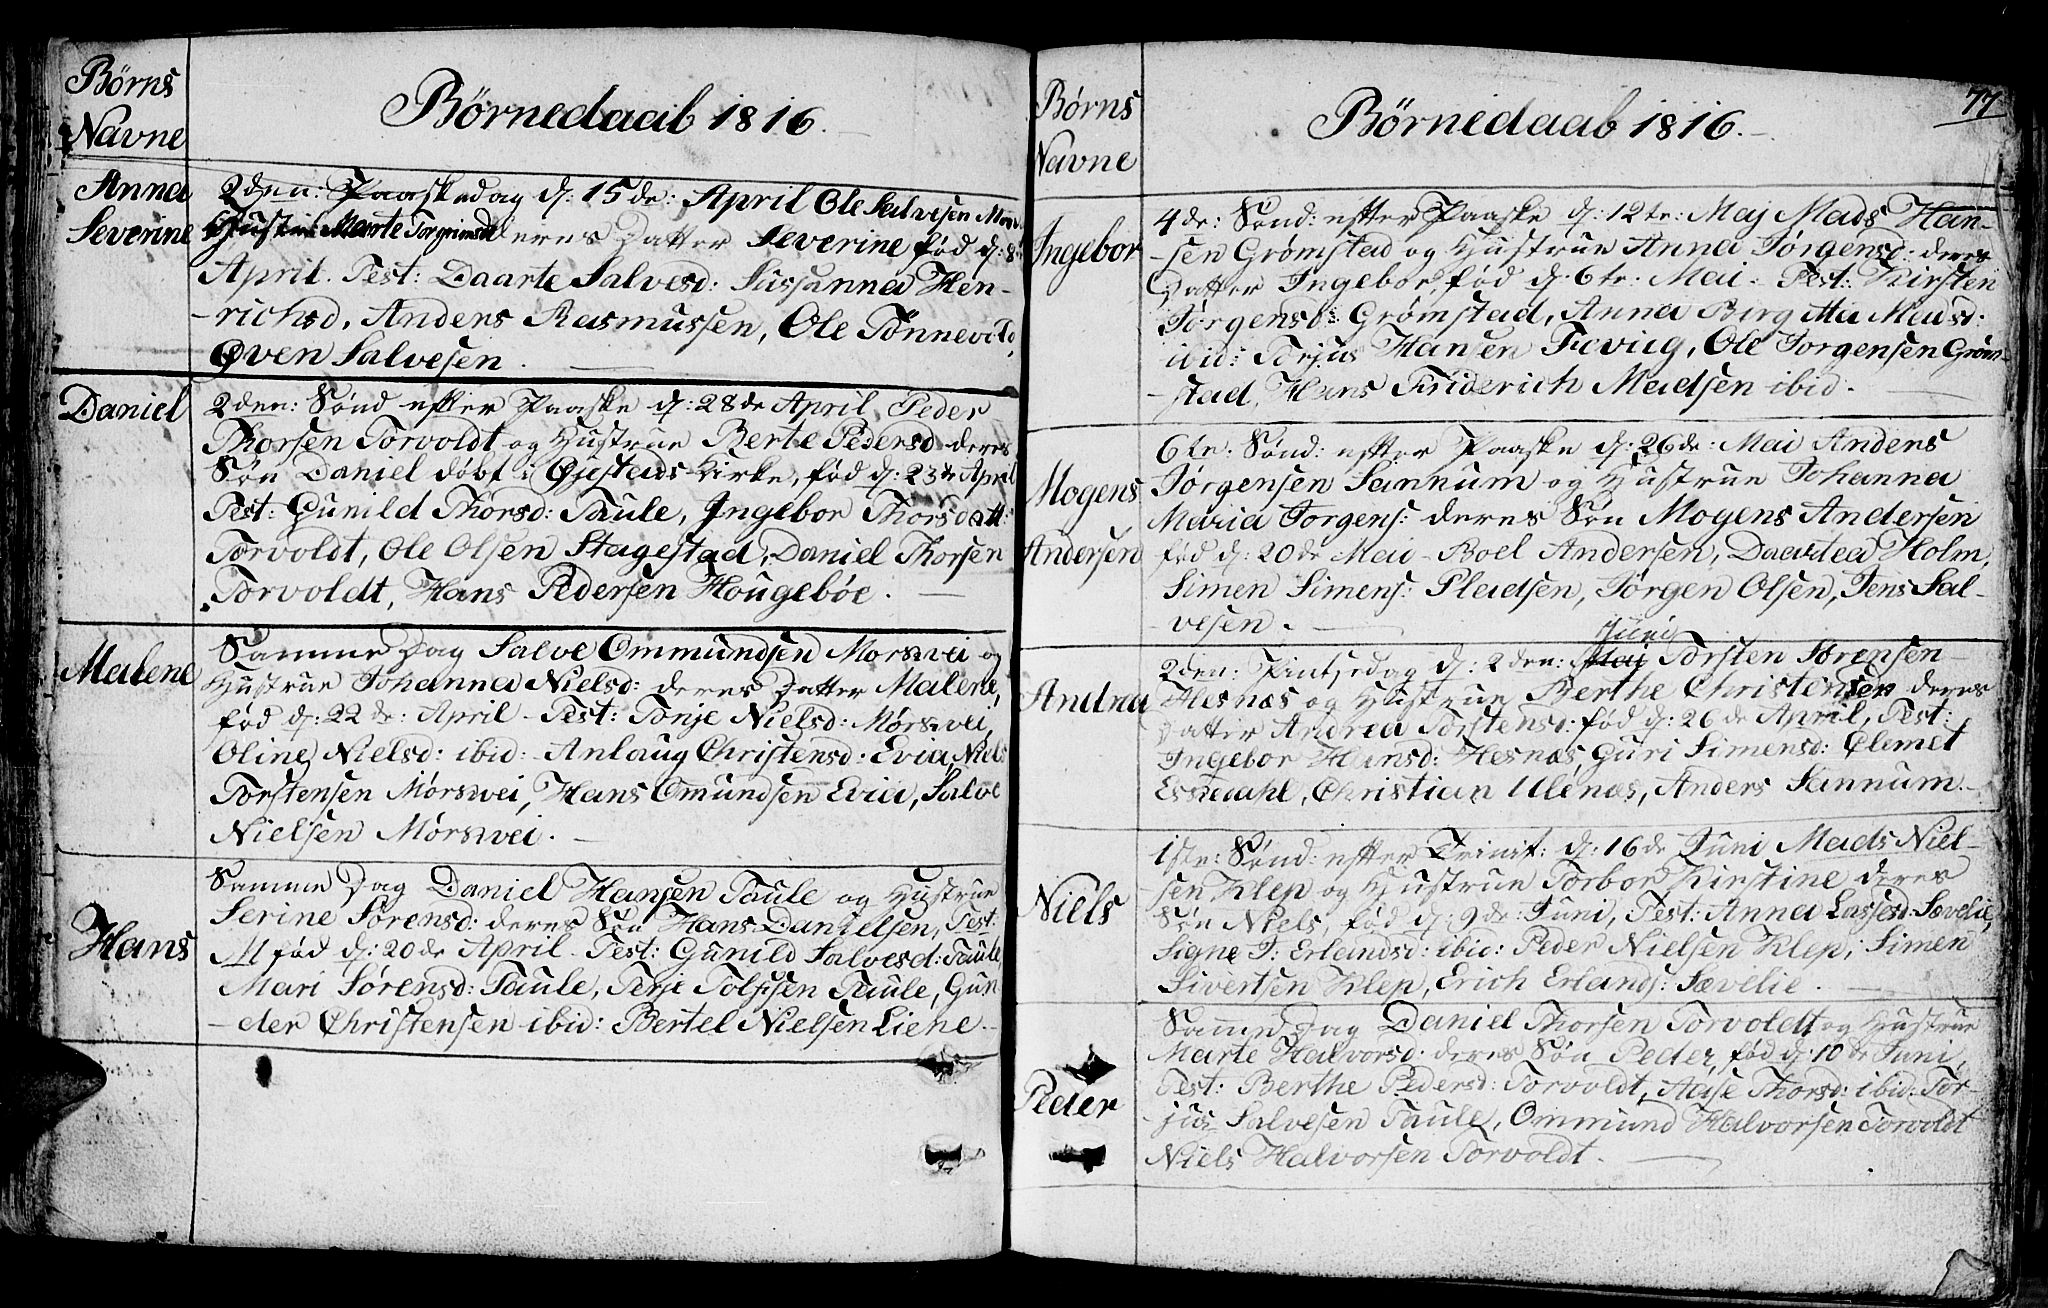 Børns
Navne
Børnedaab 1816.
Anna
Severine
2den: Paaskedag d: 15de: April Ole Salvesen
Hustrue Marte Torgrimsd deres Datter Severine fød d: 8
April. Test: Daarte Salvesd: Sussanna Hen-
-richsd, Anders Rasmussen, Ole Tønnevold,
Even Salvesen.
Daniel
2den: Sønd efter Paaske d: 28de April Peder
Thorsen Torvoldt og Hustrue Berte Pedersd deres
Søn Daniel døbt i Øjestads-Kirke, fød d: 23de April
Test: Gunild Thorsd: Taule, Ingebor Thorsdatt:
Torvoldt, Ole Olsen Stagestad, Daniel Thorsen
Torvoldt, Hans Pedersen Hougebøe.
Malene
Samme Dag Salve Ommundsen Mørsvei og
Hustrue Johanna Nielsd: deres Datter Malene,
fød d: 22de: April - Test: Tonje Nielsd: Mørsvei,
Oline Nielsd: ibid: Anlaug Christensd: Evia, Niels
Torstensen Mørsvei, Hans Omundsen Evia, Salve
Nielsen Mørsvei.
Hans
Samme Dag Daniel Hansen Taule og Hustrue
Serine Sørensd: deres Søn Hans Danielsen, Test:
fød d: 20de April - Test: Gunild Salvesd: Taule,
Mari Sørensd: Taule, Terje Tolfsen Taule, Gun
-der Christensen ibid: Bertel Nielsen Liene.
77
Børns
Navne
Børnedaab 1816.
Ingebor
4de: Sønd: efter Paaske d: 12te: Maj Mads Han-
-sen Grømstad og Hustrue Anna Jørgensd: deres
Datter Ingebor, fød d: 6te: Mai - Test: Kirsten
Jørgensd: Grømstad, Anna Birgitta Madsd:
ibid: Torjus Hansen Fevig, Ole Jorgensen Grøm-
-stad, Hans Friderich Madsen ibid.
Mogens
Andersen
6te: Sønd: efter Paaske d: 26de: Mai Anders
Jørgensen Sannum og Hustrue Johanna
Maria Jorgens: deres Søn Mogens Andersen
fød d: 20de Mai - Boel Andersen, Daartea Holm,
Simen Simens: Pladsen, Jørgen Olsen, Jens Sal-
-vesen.
Andrea
Junj
2den: Pintsedag d: 2den: Maj Torsten Sørensen
Hesnæs og Hustrue Berthe Christensen deres
Datter Andrea Torstensd: fød d: 26de April, Test:
Ingebor Hansd: Hesnæs, Guri Simensd: Clemet
Essedahl, Christian Ulenæs, Anders Sannum.
Niels
1ste: Sønd: efter Trinit: d: 16de Juni Mads Niel-
sen Klep og Hustrue Torbor Kirstine deres
Søn Niels, fød d: 9de: Juni, Test: Anna Lassesd: Sævelie,
Signe T: Erlandsd: ibid: Peder Nielsen Klep, Simen
Sivertsen Klep, Erich Erlands: Sævelie.
Peder
Samme Dag Daniel Thorsen Torvoldt og Hustrue
Marte Halvorsd: deres Søn Peder, fød d: 10de Juni,
Test: Berthe Pedersd: Torvoldt, Aase Thorsd: ibid: Tor-
-jus Salvesen Taule, Ommund Halvorsen Torvoldt
Niels Halvorsen Torvoldt.